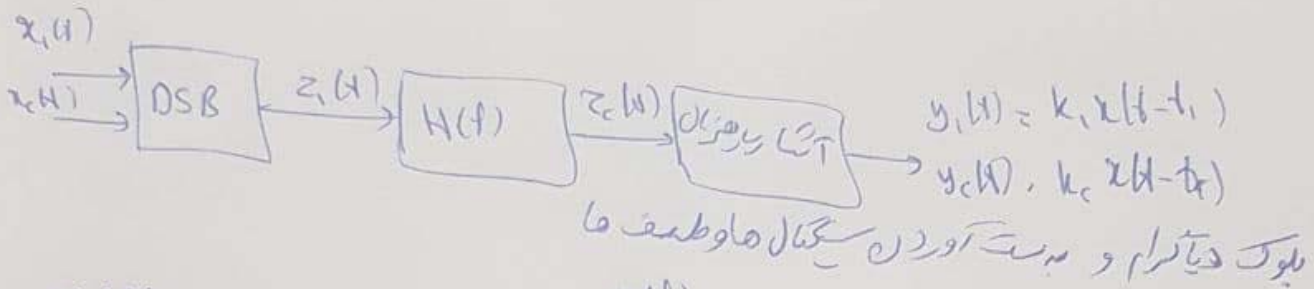 x₁(t)
x₂(t)
DSB
z₁(t)
H(f)
z₂(t)
آشکارساز همزمان
y₁(t) = k₁ x(t-t₁)
y₂(t) = k₂ x(t-t₂)
بلوک دیاگرام و بدست آوردن سیگنال ها و طیف ها